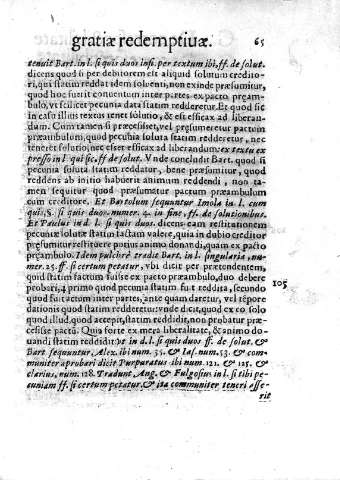 gratiæ redemptiuæ. 65
tenuit Bart. in l. si quis duos insi. per textum ibi, ff. de solut.
dicens quod si per debitorem est aliquid solutum credito-
ri, qui statim reddat idem soluenti, non exinde præsumitur,
quod hoc fuerit conuentum inter partes ex pacto, præam-
bulo, vt scilicet pecunia data statim redderetur. Et quod sic
in casu illius textus tenet solutio, & est efficax ad liberan-
dum. Cum tamen si præcessisset, vel præsumeretur pactum
præambulum, quod pecunia soluta statim redderetur, nec
teneret solutio, nec esset efficax ad liberandum ex textu ex
presso in l. qui sic, ff. de solut. Vnde concludit Bart. quod si
pecunia soluta statim reddatur, bene præsumitur, quod
reddens ab initio habuerit animum reddendi, non ta-
men sequitur quod præsumetur pactum præambulum
cum creditore. Et Bartolum sequuntur Imola in l. cum
qui, §. si quis duos. numer. 4. in fine, ff. de solutionibus.
Et Paulus in d. l. si quis duos. dicens eam restitutionem
pecuniæ solutæ statim factam valere, quia in dubio creditor
præsumitur restituere potius animo donandi, quam ex pacto
præambulo. Idem pulchrè tradit Bart. in l. singularia, nu-
mer. 25. ff. si certum petatur, vbi dicit per prætendentem,
quod statim factum fuisse ex pacto præambulo, duo debere
probari, primo quod pecunia statim fuit reddita, secundo
quod fuit actum inter partes, ante quam daretur, vel tempore
dationis quod statim redderetur: vnde dicit, quod ex eo solo
quod illud, quod accepit, statim reddidit, non probatur præ-
cessisse pactū. Quia forte ex mera liberalitate, & animo do-
nandi statim reddidit: vt in d. l. si quis duo. ff. de solut. &
Bart sequuntur, Alex. ibi num. 35. & Ias. num. 53. & com-
muniter aprobari dicit Purpuratus ibi num. 121. & 125. &
clarius, num. 128. Tradunt, Ang. & Fulgosius in l. si tibi pe-
cuniam ff. si certum petatur, & ita communiter teneri asse-
rit
105